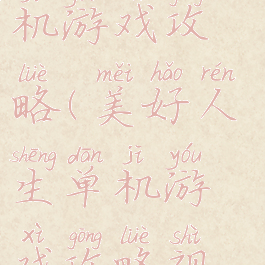 机游戏攻
lüè měi hǎo rén
略(美好人
shēng dān jī yóu
生单机游
xì gōng lüè shì
戏攻略视